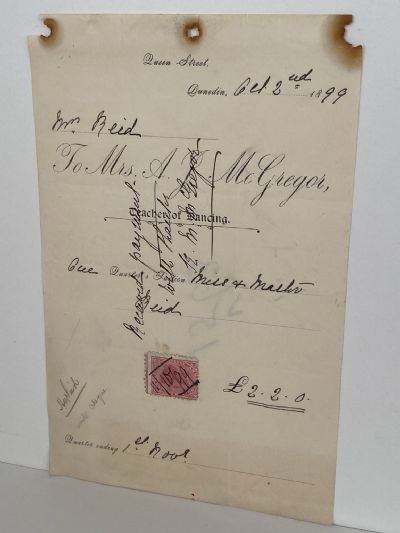 Queen Street,
Dunedin, Oct 2nd 1899
Mr Reid
To Mrs. A. McGregor,
Teacher of Dancing.
One Quarter's Tuition Miss & Master
Reid
Received payment
with thanks
McGregor
£2.2.0.
Quarter ending 1st Novr